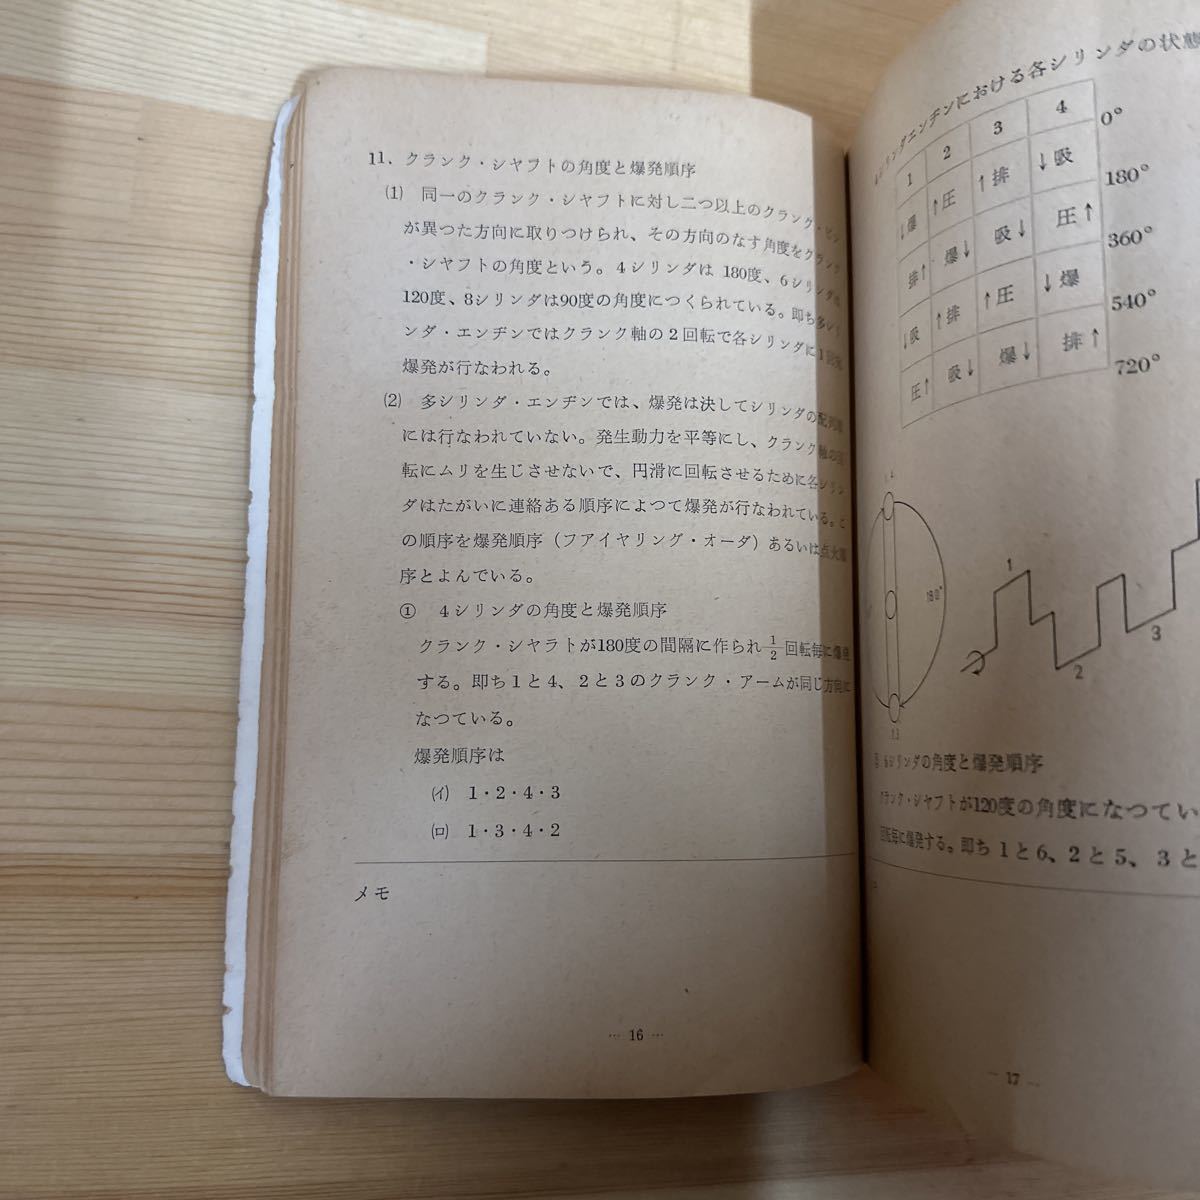 11．クランク・シヤフトの角度と爆発順序
⑴　同一のクランク・シヤフトに対し二つ以上のクランク・ピン
が異つた方向に取りつけられ、その方向のなす角度をクランク
・シヤフトの角度という。4シリンダは 180度、6シリンダは
120度、8シリンダは90度の角度につくられている。即ち多シリ
ンダ・エンヂンではクランク軸の2回転で各シリンダに1回宛
爆発が行なわれる。
⑵　多シリンダ・エンヂンでは、爆発は決してシリンダの配列順
には行なわれていない。発生動力を平等にし、クランク軸の回
転にムリを生じさせないで、円滑に回転させるために各シリン
ダはたがいに連絡ある順序によつて爆発が行なわれている。こ
の順序を爆発順序（フアイヤリング・オーダ）あるいは点火順
序とよんでいる。
①　4シリンダの角度と爆発順序
クランク・シヤラトが180度の間隔に作られ1/2回転毎に爆発
する。即ち1と4、2と3のクランク・アームが同じ方向に
なつている。
爆発順序は
(イ)　1・2・4・3
(ロ)　1・3・4・2
メモ
… 16 …
シリンダエンヂンにおける各シリンダの状態
1 2 3 4 0°
↓爆 ↑圧 ↑排 ↓吸 180°
排↑ 爆↓ 吸↓ 圧↑ 360°
↓吸 ↑排 ↑圧 ↓爆 540°
圧↑ 吸↓ 爆↓ 排↑ 720°
180°
1
2
3
6シリンダの角度と爆発順序
クランク・シヤフトが120度の角度になつてい
回転毎に爆発する。即ち 1と6、2と5、3と
… 17 …